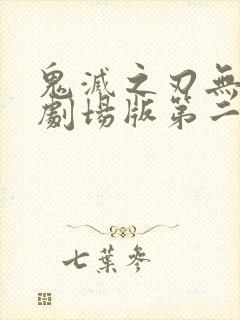 鬼滅之刃無
劇場版第二
七葉參